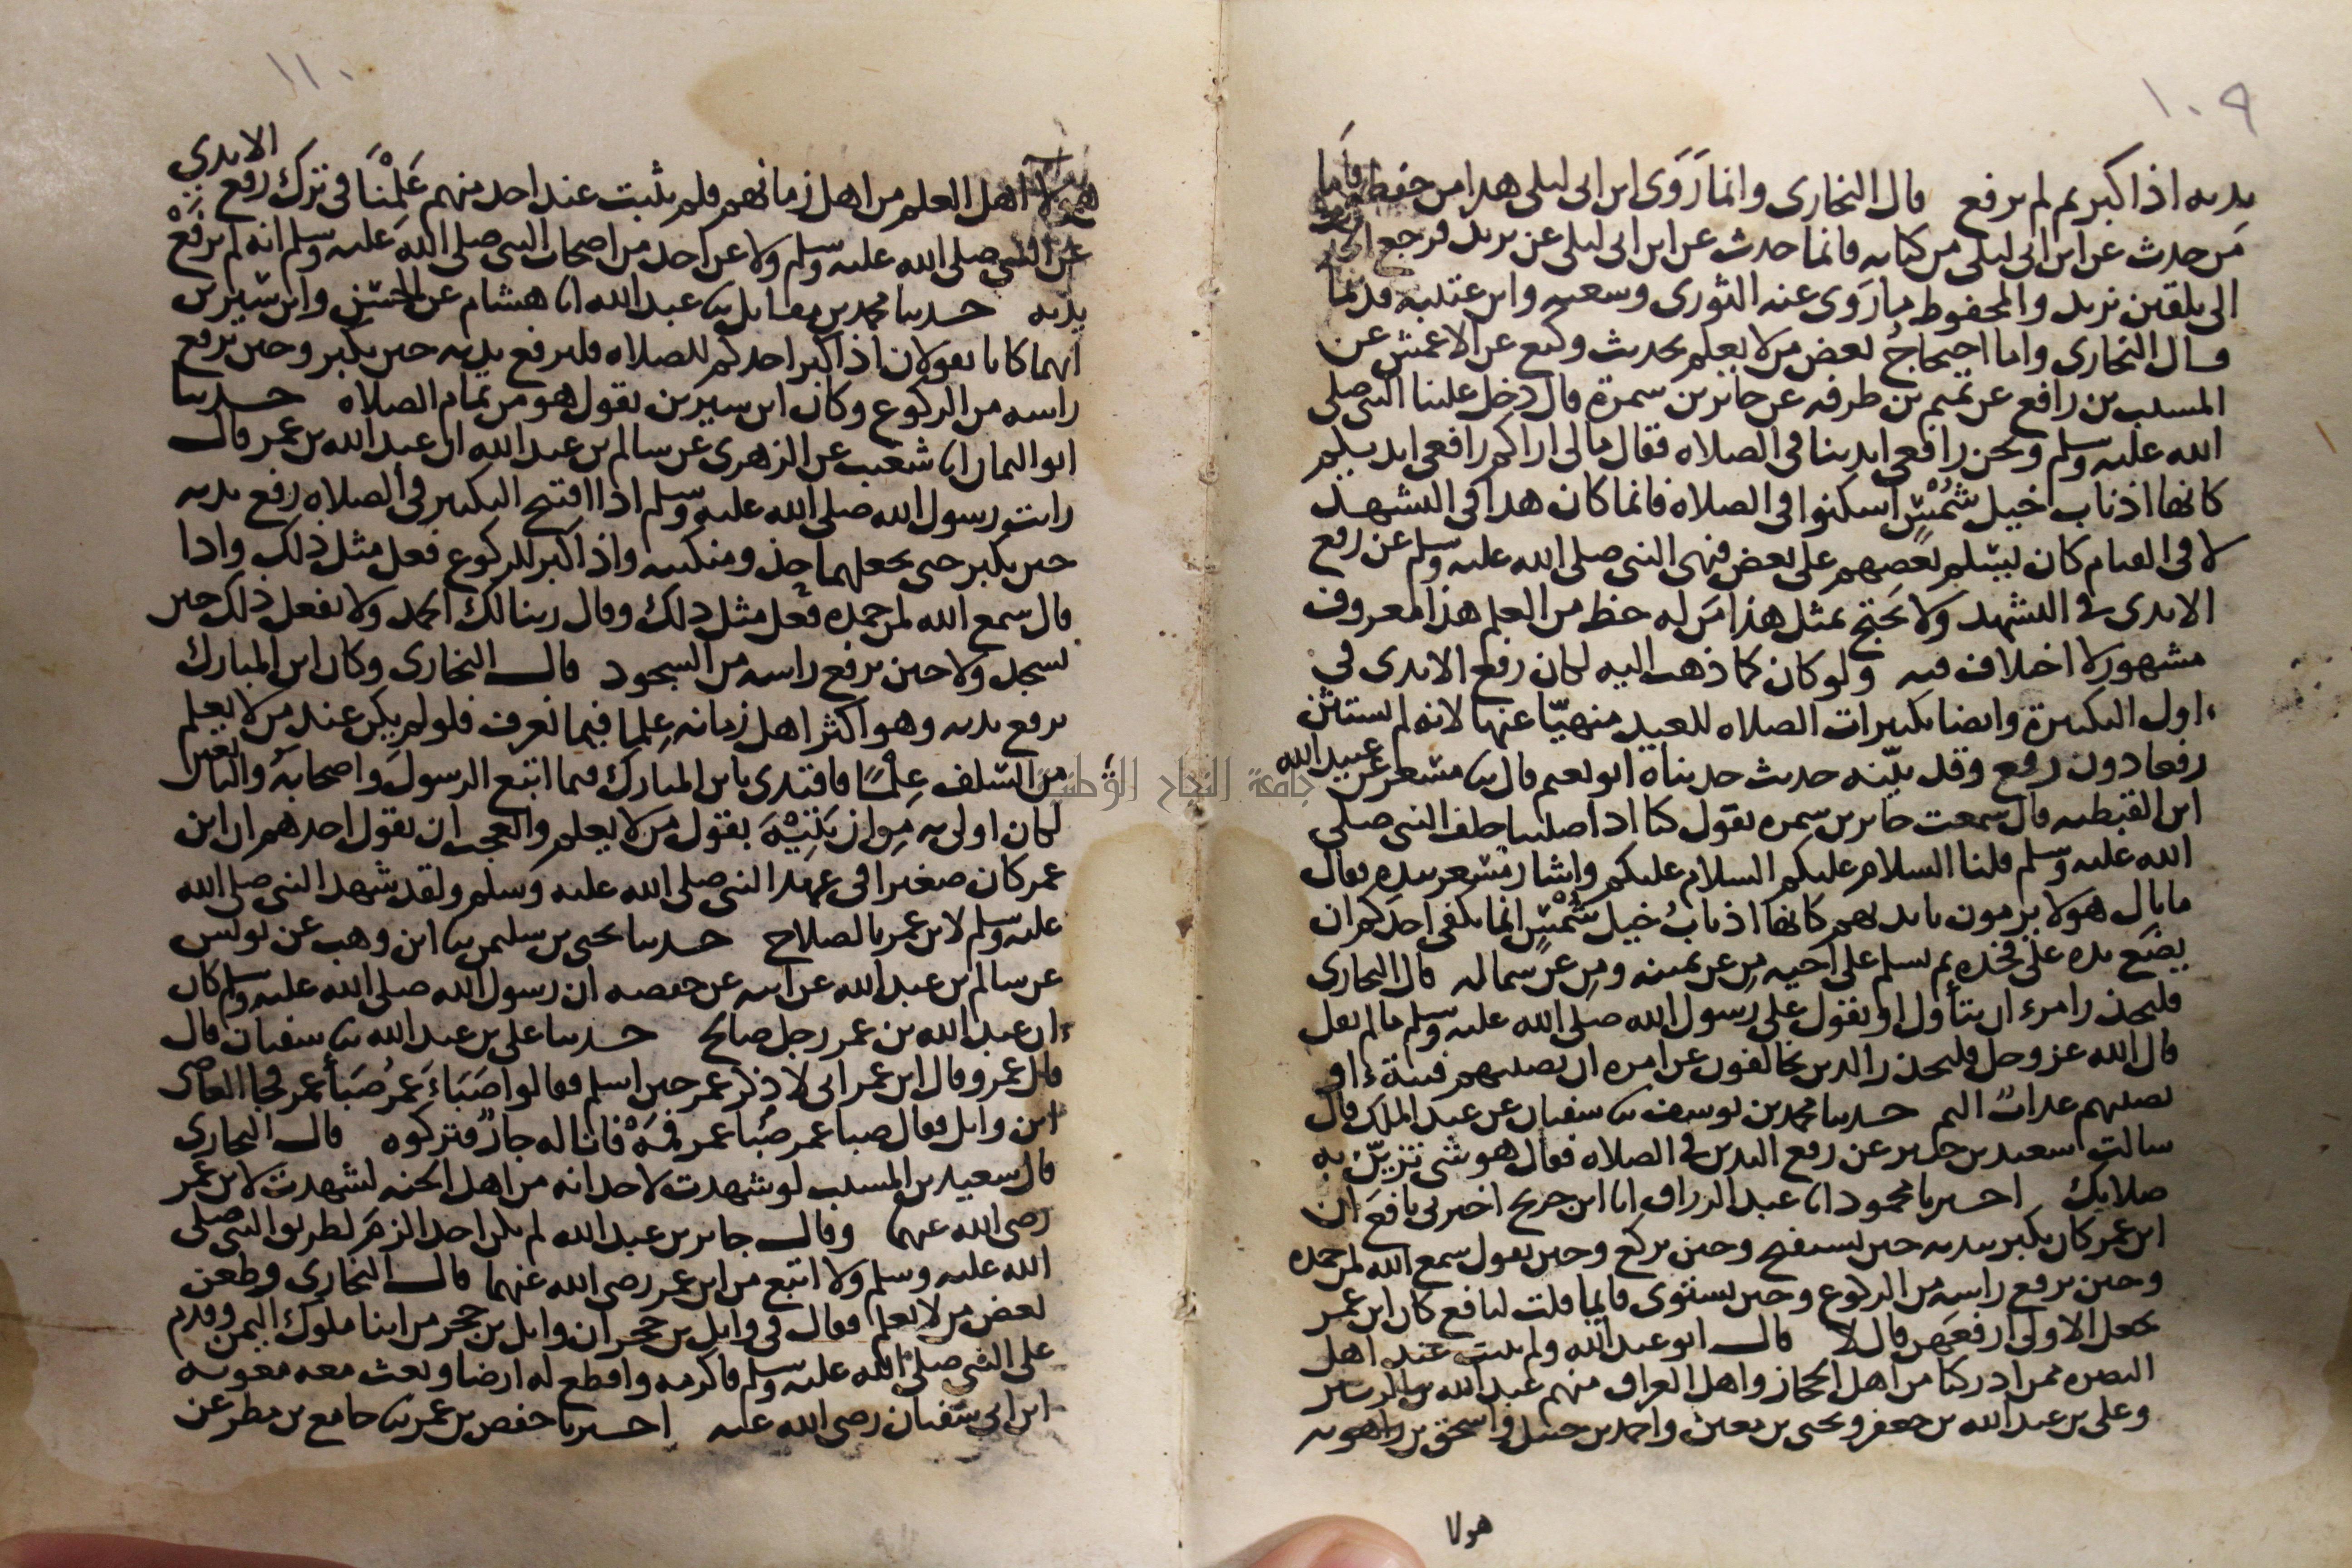 ١٠٩
يديه اذا كبر ثم لم يرفع قال البخارى وانما رَوَى ابن ابى ليلى هذا من حفظه فاَما
مَن حدث عن ابن ابى ليلى من كتابه فانما حدث عن ابن ابى ليلى عن يزيد فرجع الحديث
الى تلقين يزيد والمحفوظ ما رَوى عنه الثورى وشعبه وابن عيينه قديما
قال البخارى واما احتجاجُ بعض من لا يعلم بحديث وكيع عن الاعمش عن
المسيب بن رافع عن تميم بن طرفه عن جابر بن سمرة قال دخل علينا النبى صلى
الله عليه وسلم ونحن رافعى ايدينا فى الصلاه فقال مالى اراكم رافعى ايديكم
كانها اذناب خيل شُمْسٍ اسكنوا فى الصلاه فانما كان هذا فى التشهد
لا فى القيام كان يسلم بعضهم على بعض فنهى النبى صلى الله عليه وسلم عن رفع
الايدى فى التشهد ولا يحتج بمثل هذا مَن له حظ من العلم هذا معروف
مشهور لا اختلاف فيه ولو كان كما ذهب اليه لكان رفع الايدى فى
اول التكبيرة وايضا تكبيرات الصلاه للعيد منهيّا عنها لانه لم يستثن
رفعا دون رفع وقد بيّنه حديث حدثناه ابو نعيم قال ثنا مسعر عن عبيد الله
ابن القبطيه قال سمعت جابر بن سمره يقول كنا اذا صلينا خلف النبى صلى
الله عليه وسلم قلنا السلام عليكم السلام عليكم واشار مسعر بيده فقال
ما بال هولا يرمون بايديهم كانها اذنابُ خيل شُمْسٍ انما يكفى احدكم ان
يضع يده على فخذه ثم يسلم على اخيه مِن عن يمينه ومِن عن شماله قال البخارى
فليحذر امرء ان يتأول او يقول على رسول الله صلى الله عليه وسلم ما لم يقل
قال الله عز وجل فليحذر الذين يخالفون عن امره ان تصيبهم فتنة او
يصيبهم عذاب اليم حدثنا محمد بن يوسف ثنا سفيان عن عبد الملك قال
سالت سعيد بن جبير عن رفع اليدين فى الصلاه فقال هو شى تزيّن به
صلاتك اخبرنا محمود انا عبد الرزاق انا ابن جريج اخبرنى نافع ان
ابن عمر كان يكبر بيديه حين يستفتح وحين يركع وحين يقول سمع الله لمن حمده
وحين يرفع راسه من الركوع وحين يستوى قايما قلت لنافع كان ابن عمر
يجعل الاولى ارفعهن قال لا قال ابو عبد الله ولم يثبت عند اهل
البصره ممن ادركنا من اهل الحجاز واهل العراق منهم عبد الله بن الزبير
وعلى بن عبد الله بن جعفر ويحيى بن معين واحمد بن حنبل واسحق بن راهويه
هولا
١١٠
هولا اهل العلم من اهل زمانهم فلم يثبت عند احد منهم عَلِمْنَا فى ترك رفع الايدى
عن النبى صلى الله عليه وسلم ولا عن احد من اصحاب النبى صلى الله عليه وسلم انه لم يرفَعْ
يديه حدثنا محمد بن مقاتل ثنا عبد الله انا هشام عن الحسن وابن سيرين
انهما كانا يقولان اذا كبر احدكم للصلاه فليرفع يديه حين يكبر وحين يرفع
راسه من الركوع وكان ابن سيرين يقول هو من تمام الصلاه حدثنا
ابو اليمان انا شعيب عن الزهرى عن سالم بن عبد الله ان عبد الله بن عمر قال
رايت رسول الله صلى الله عليه وسلم اذا افتتح التكبير فى الصلاه رفع يديه
حين يكبر حتى يجعلهما حذو منكبيه واذا كبر للركوع فعل مثل ذلك واذا
قال سمع الله لمن حمده فعل مثل ذلك وقال ربنا لك الحمد ولا يفعل ذلك حين
يسجد ولا حين يرفع راسه من السجود قال البخارى وكان ابن المبارك
يرفع يديه وهو اكثر اهل زمانه عِلما فيما نعرف فلو لم يكن عند من لا يعلم
من السلف عِلْمًا فاقتدى بابن المبارك فيما اتبع الرسول واصحابه والتابعين
لكان اولى به مِن ان يثبته بقول من لا يعلم والعجب ان يقول احدهم ان ابن
عمر كان صغيرا فى عهد النبى صلى الله عليه وسلم ولقد شهد النبى صلى الله
عليه وسلم لابن عمر بالصلاح حدثنا يحيى بن سليمن ثنا ابن وهب عن يونس
عن سالم بن عبد الله عن ابيه عن حفصه ان رسول الله صلى الله عليه وسلم كان
ان عبد الله بن عمر رجل صالح حدثنا على بن عبد الله ثنا سفيان قال
قال عمرو قال ابن عمر انى لا ذكر عمر حين اسلم فقالوا صَبَاءَ عمرُ صَبَأ عمر فجا العاصى
ابن وايل فقال صبا عمر صبا عمر فمَهْ فانا له جارٌ فتركوه قال البخارى
قال سعيد بن المسيب لو شهدت لاحد انه من اهل الجنه لشهدت لابن عمر
رضى الله عنهما وقال جابر بن عبد الله لم يكن احد الزمَ لطريق النبى صلى
الله عليه وسلم ولا اتبع من ابن عمر رضى الله عنهما قال البخارى وطعن
بعض من لا يعلم فقال فى وايل بن حجر ان وايل بن حجر من ابنا ملوك اليمن وقدم
على النبى صلى الله عليه وسلم فاكرمه واقطع له ارضا وبعث معه معويه
ابن ابى سفيان رضى الله عنه اخبرنا حفص بن عمر ثنا جامع بن مطر عن
جامعة النجاح الوطنية